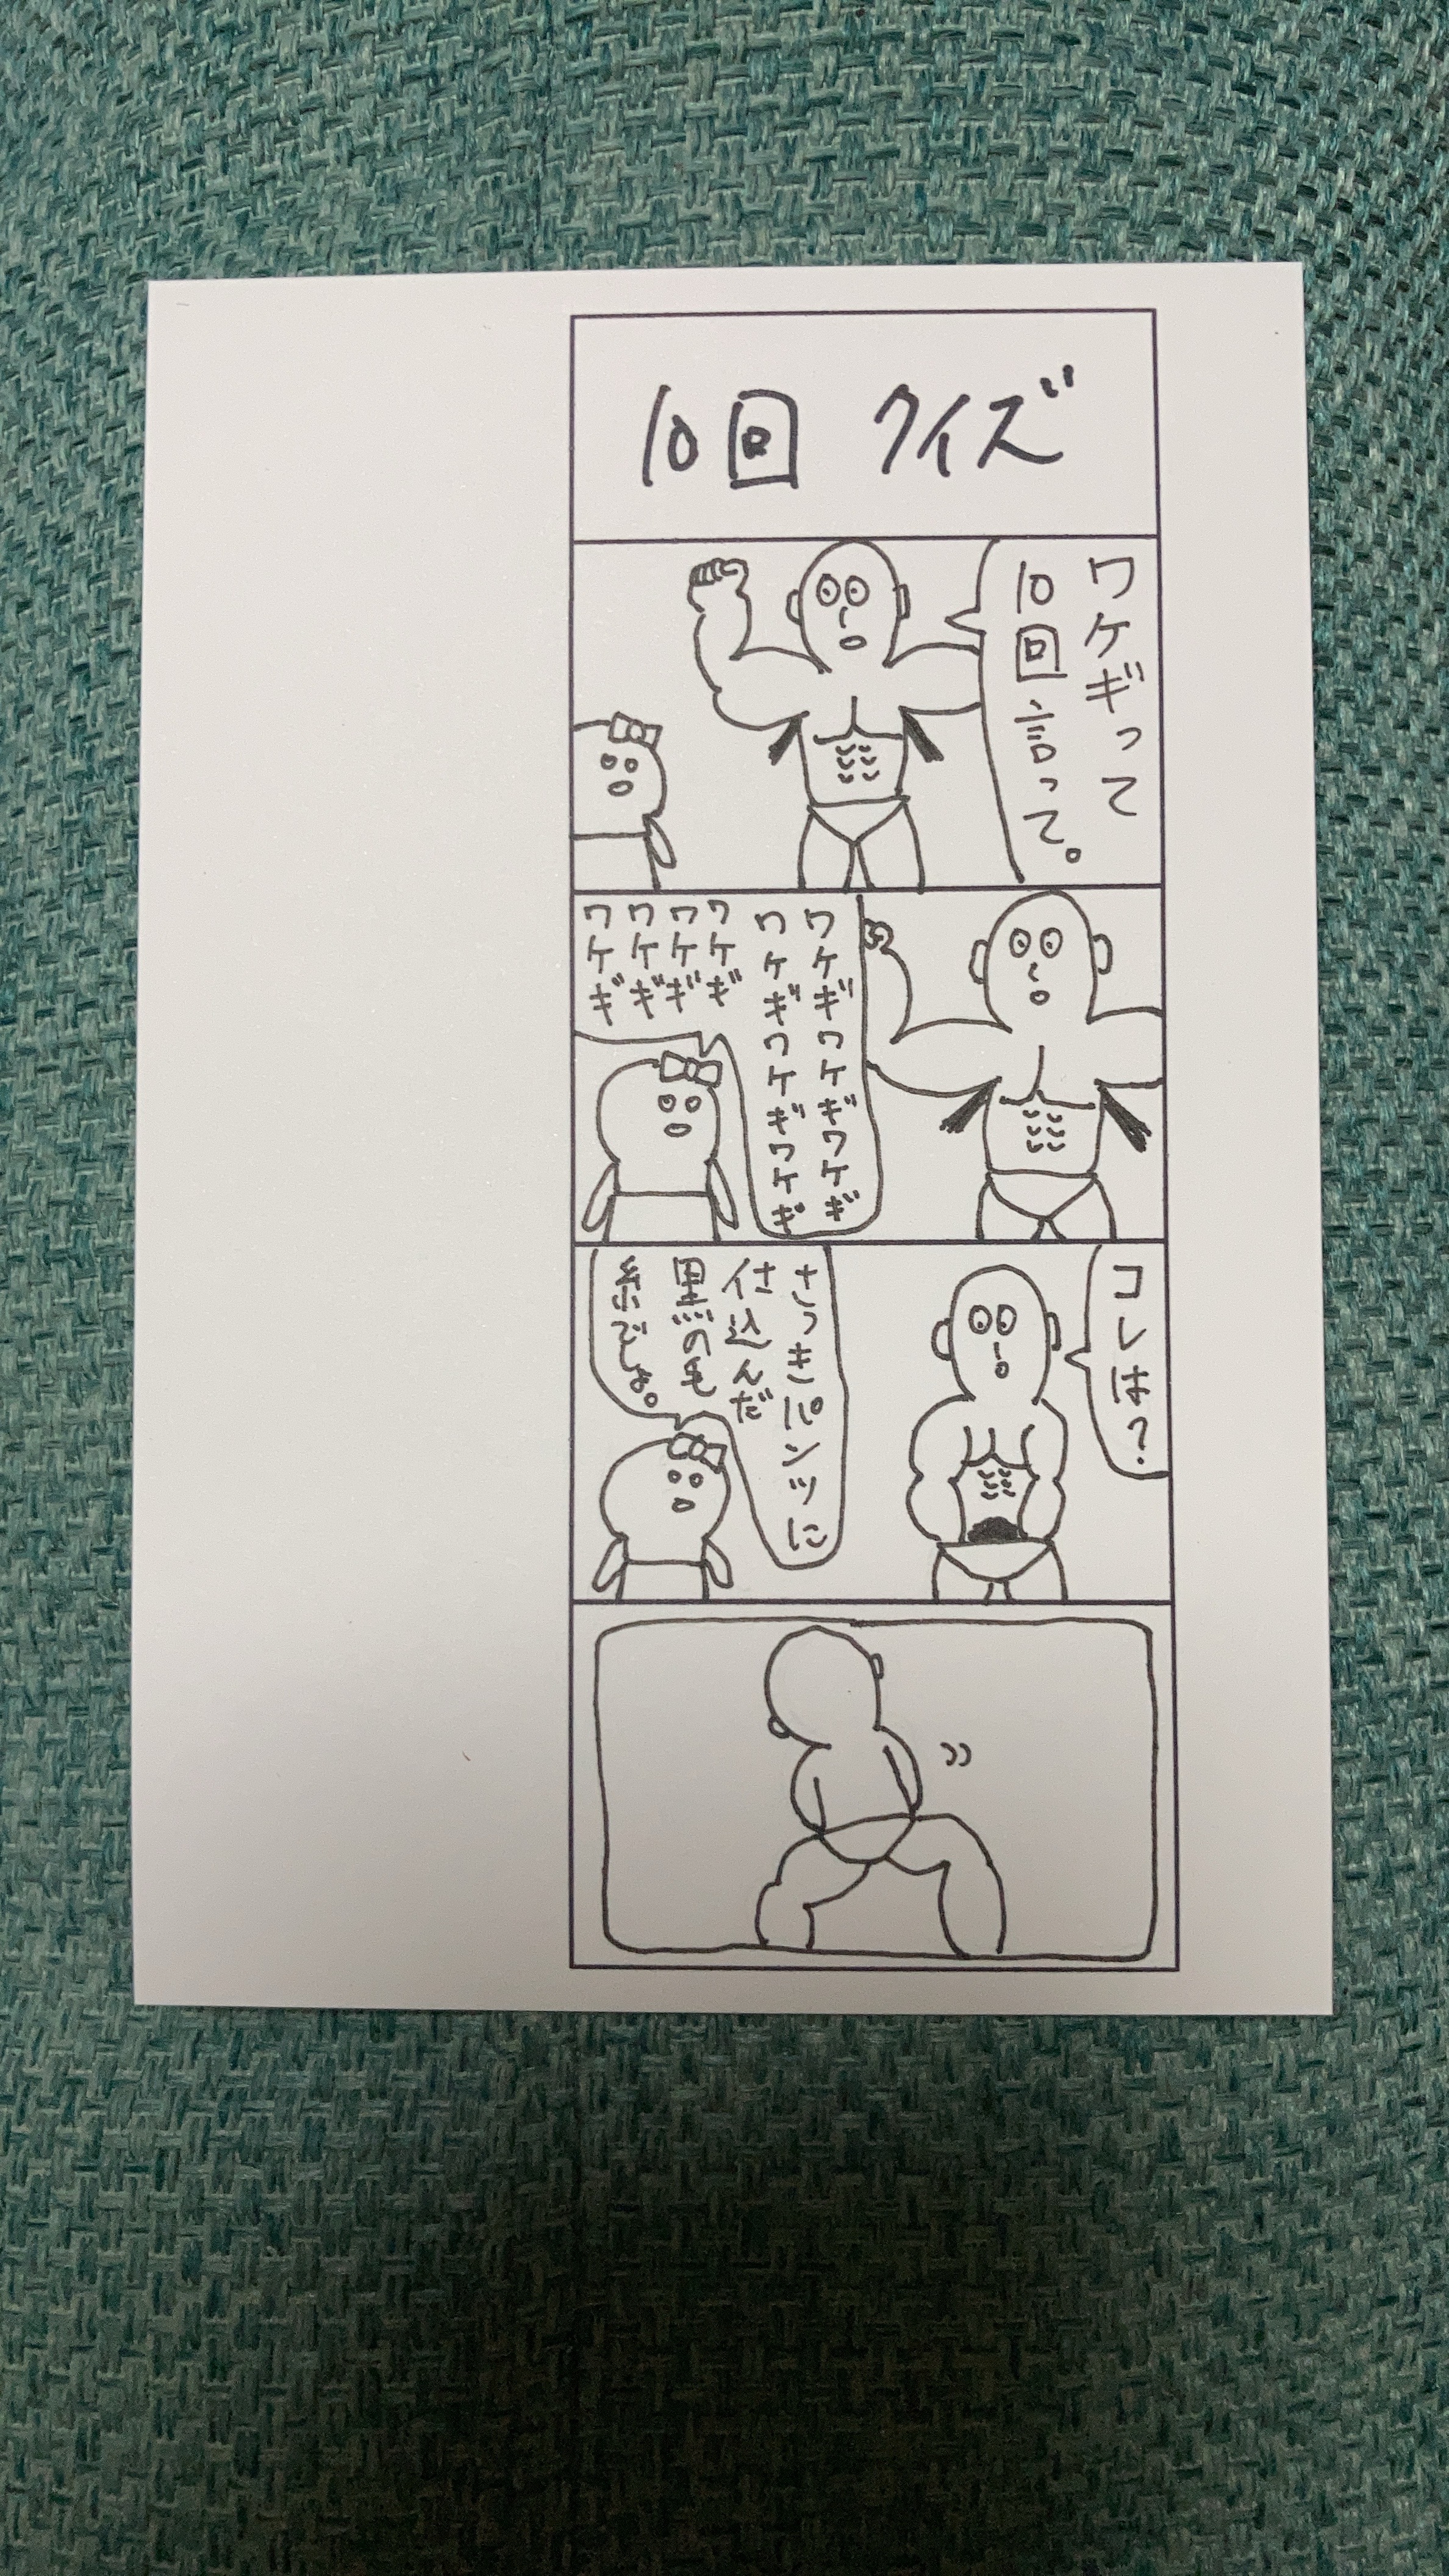 10回 クイズ
ワケギって
10回言って。
ワケギワケギワケギ
ワケギワケギワケギ
ワケギ
ワケギ
ワケギ
ワケギ
コレは?
さっきパンツに
仕込んだ
黒の毛
糸でしょ。